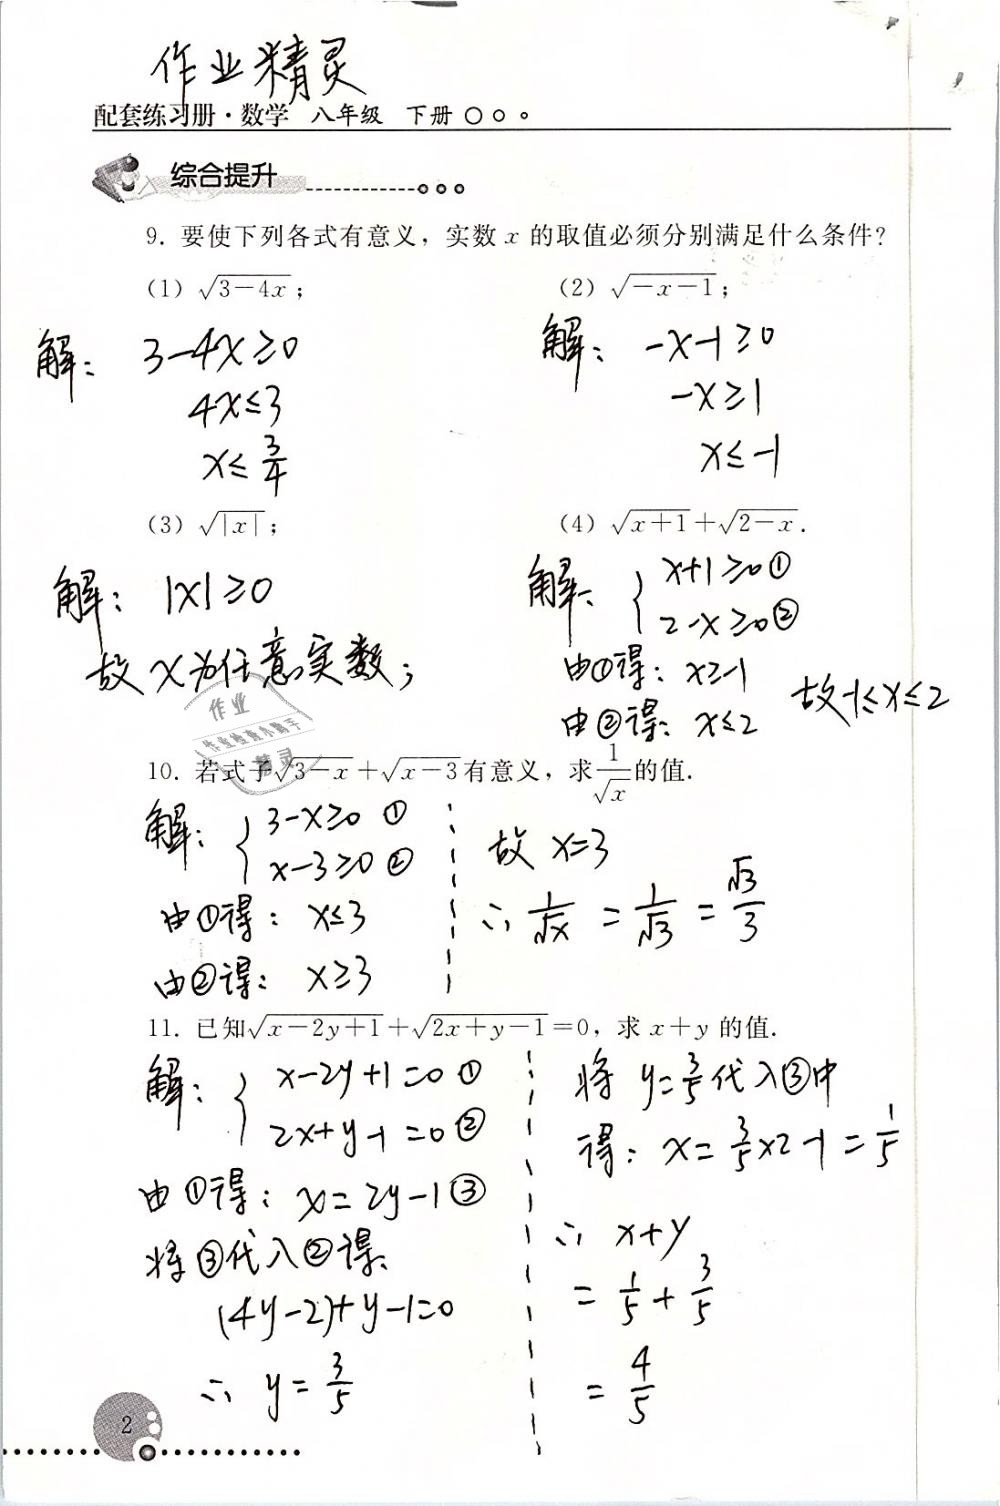 作业精灵
配套练习册·数学 八年级 下册
综合提升
9. 要使下列各式有意义，实数 x 的取值必须分别满足什么条件？
(1) √(3-4x)； (2) √(-x-1)；
解： 3-4x≥0
4x≤3
x≤3/4
解： -x-1≥0
-x≥1
x≤-1
(3) √|x|； (4) √(x+1)+√(2-x).
解： |x|≥0
故 x为任意实数；
解： { x+1≥0①
2-x≥0②
由①得： x≥-1
由②得： x≤2 故-1≤x≤2
作业
作业检查小助手
精灵
10. 若式子√(3-x)+√(x-3)有意义，求1/√x的值.
解： { 3-x≥0 ①
x-3≥0 ②
由①得： x≤3
由②得： x≥3
故 x=3
∴ 1/√x = 1/√3 = √3/3
11. 已知√(x-2y+1)+√(2x+y-1)=0，求 x+y 的值.
解： { x-2y+1=0 ①
2x+y-1=0②
由①得： x=2y-1③
将③代入②得：
(4y-2)+y-1=0
∴ y=3/5
将 y=3/5代入③中
得： x=3/5×2-1=1/5
∴ x+y
=1/5+3/5
=4/5
2